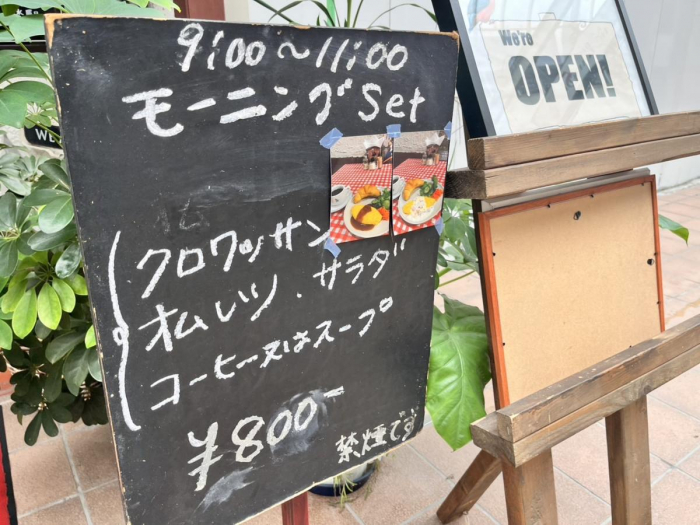 9:00～11:00
モーニングSet
クロワッサン
オムレツ・サラダ
コーヒー又はスープ
¥800-
禁煙です
We're
OPEN!
WE